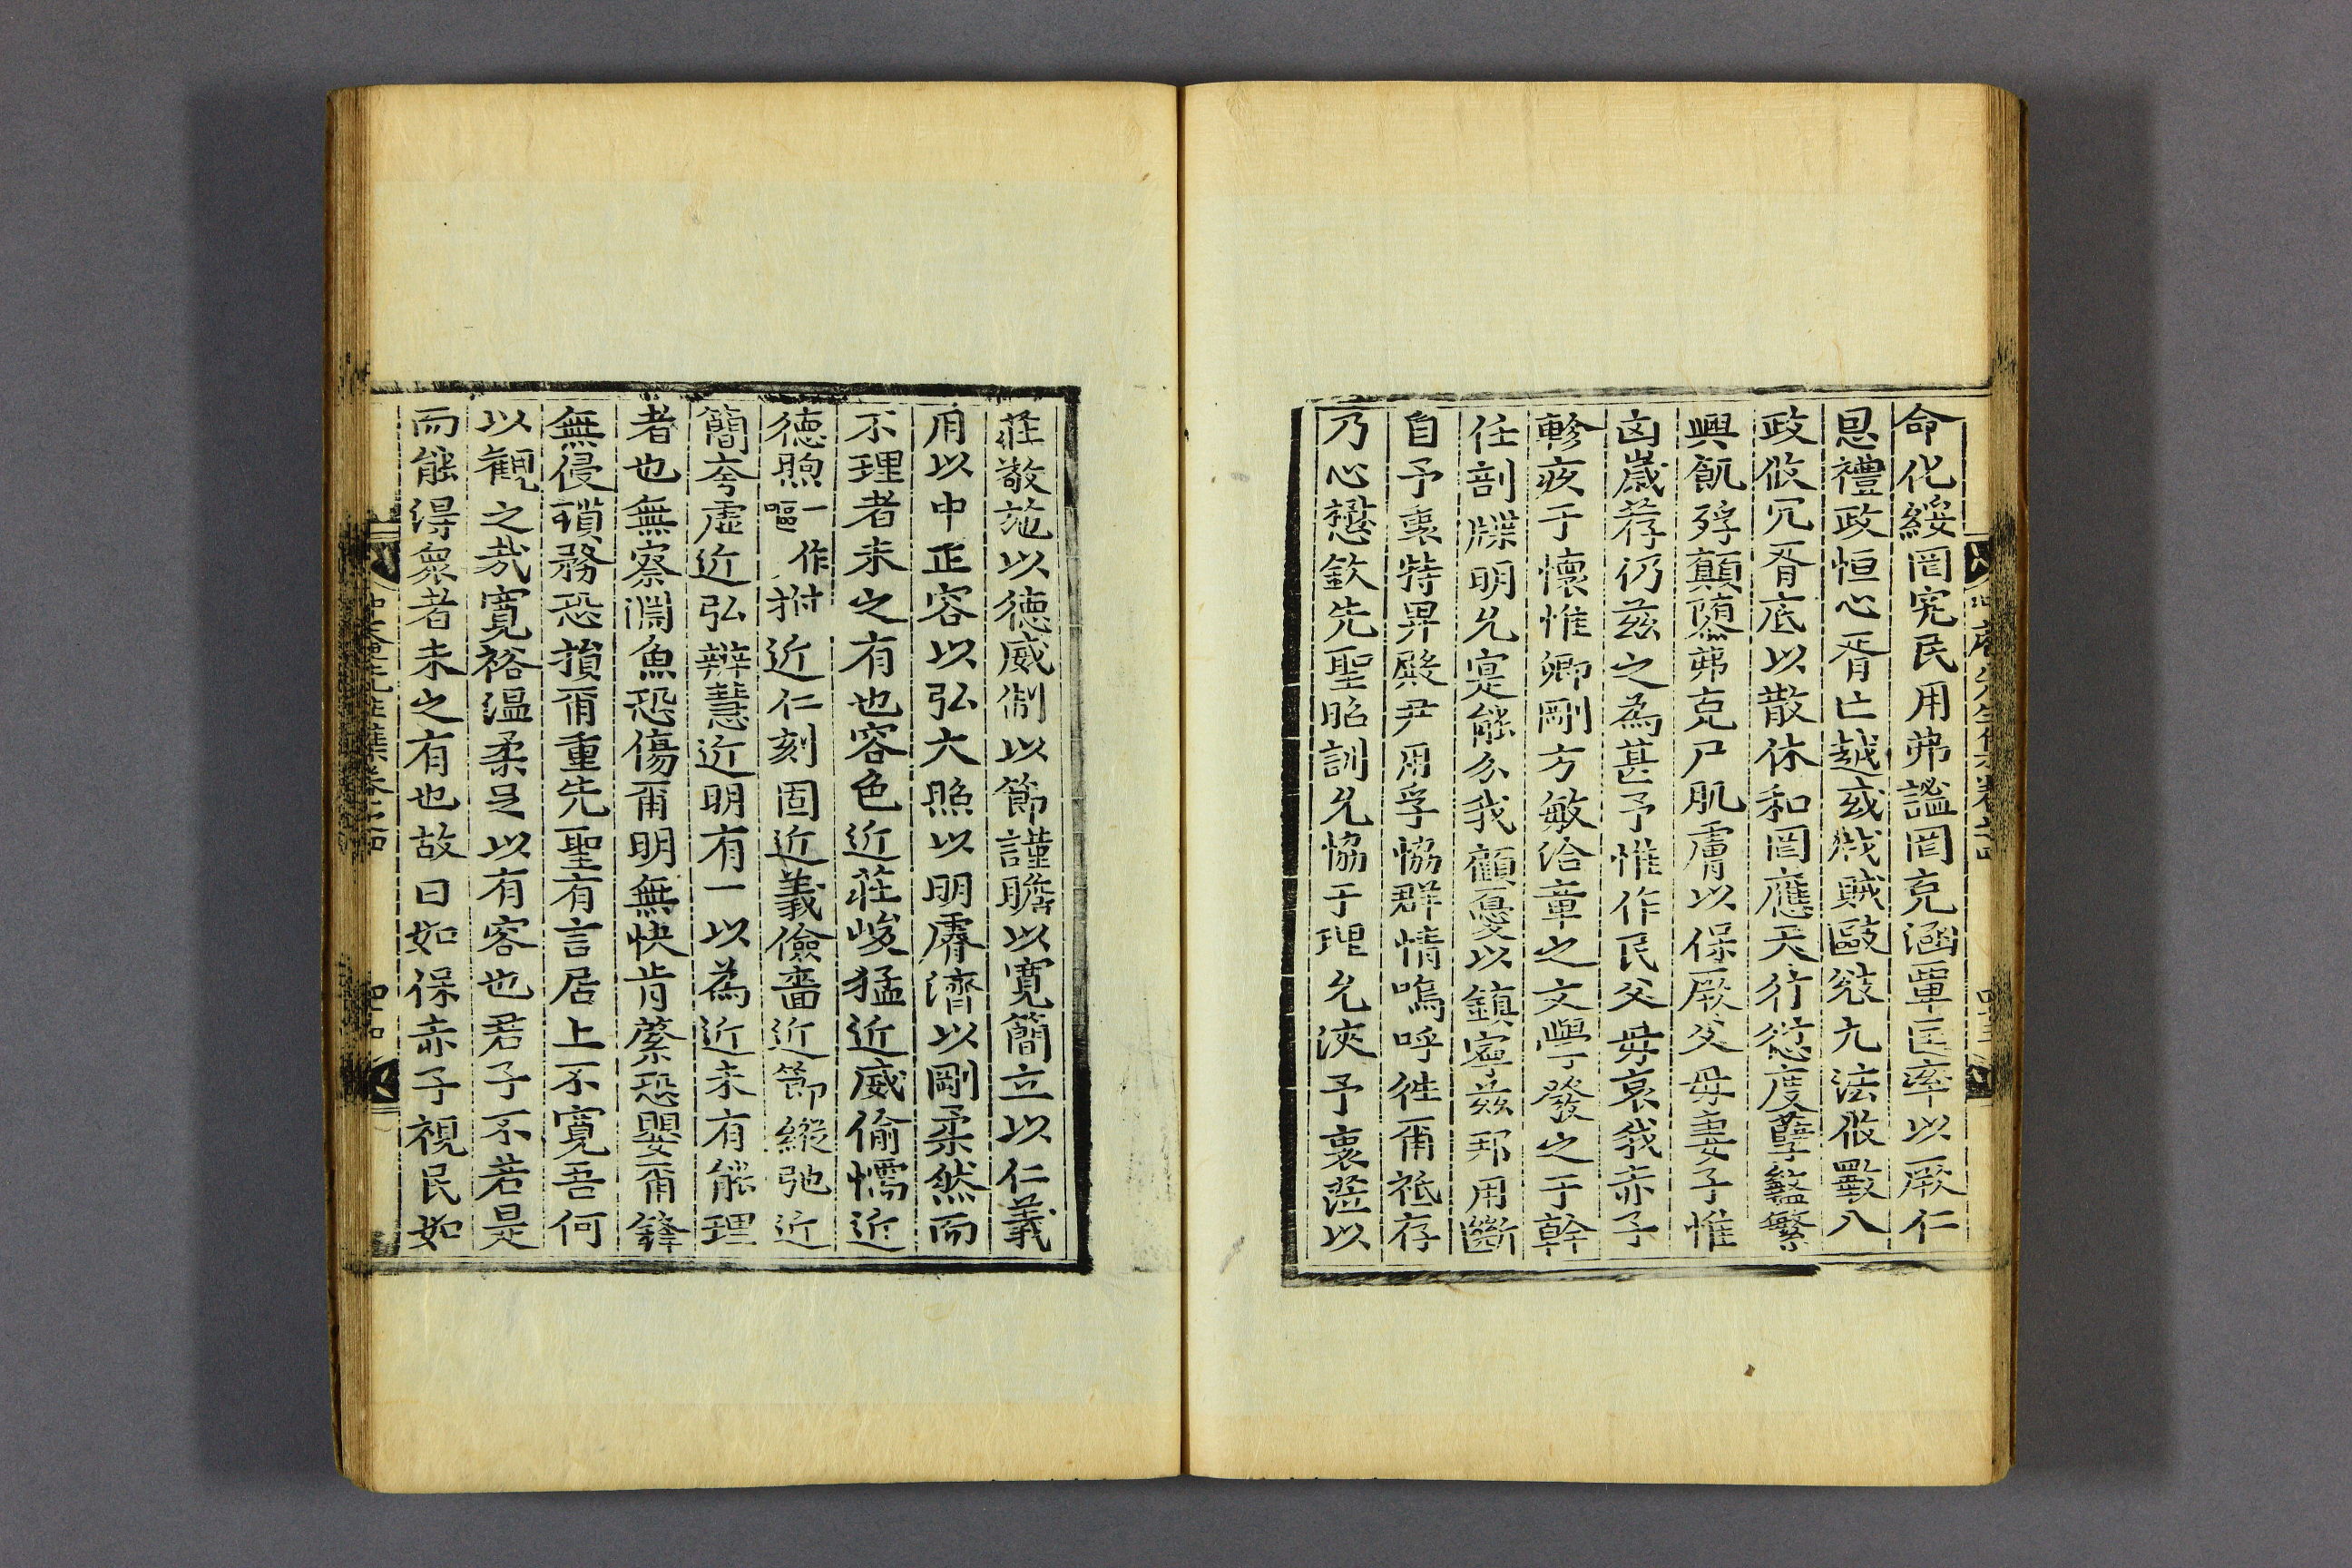 命化綏罔究民用弗謐罔克涵覃匡率以厥仁
恩禮政恒心胥亡越或戕賊敺敓亢法攸斁八
政攸冗胥底以散休和罔應天行愆度孽螽繁
興飢殍顛隳弗克尸肌膚以保厥父母妻子惟
凶歲荐仍玆之為甚予惟作民父母哀我赤子
軫疚于懷惟卿剛方敏洽章之文學發之于幹
任剖牒明允寔能分我顧憂以鎮寧玆邦用斷
自予衷特畀殿尹用孚協群情嗚呼徃甬祗存
乃心懋欽先聖昭訓允恊于理允浹予衷莅以
莊敬施以德威制以節謹瞻以寬簡立以仁義
用以中正容以弘大照以明膚濟以剛柔然而
不理者未之有也容色近莊峻猛近威偷懦近
德煦一作嘔拊近仁刻固近義儉嗇近節縱弛近
簡夸虛近弘辦慧近明有一以為近未有能理
者也無察淵魚恐傷甬明無快肯綮恐嬰甬鋒
無侵𤨏務恐損甬重先聖有言居上不寬吾何
以觀之哉寬裕溫柔足以有容也君子不若是
而能得衆者未之有也故曰如保赤子視民如